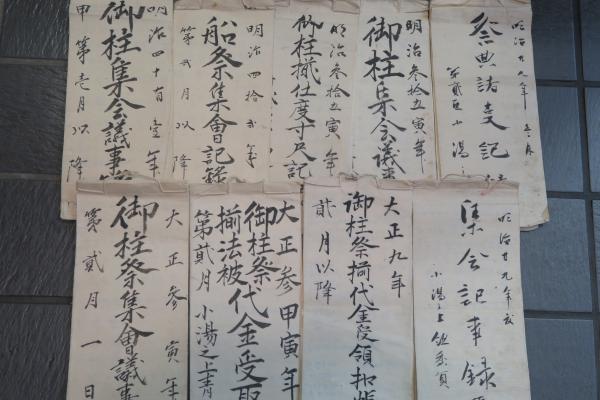 明治廿九年
祭典諸受記
第貳区小湯之
明治叁拾五寅年
御柱集会議事
明治叁拾五寅年
御柱揃仕度寸尺記
明治四拾弐年
船祭集會記録
第弐月以降
明治四十有壹年
御柱集会議事
甲第壱月以降
明治廿九年
集会記事録
小湯之上組
大正九年
御柱祭揃代金受領扣帳
貮月以降
大正参甲寅年
御柱祭代金受取
揃法被
第貳月小湯之上青
大正参寅年
御柱祭集會議事
第貮月一日